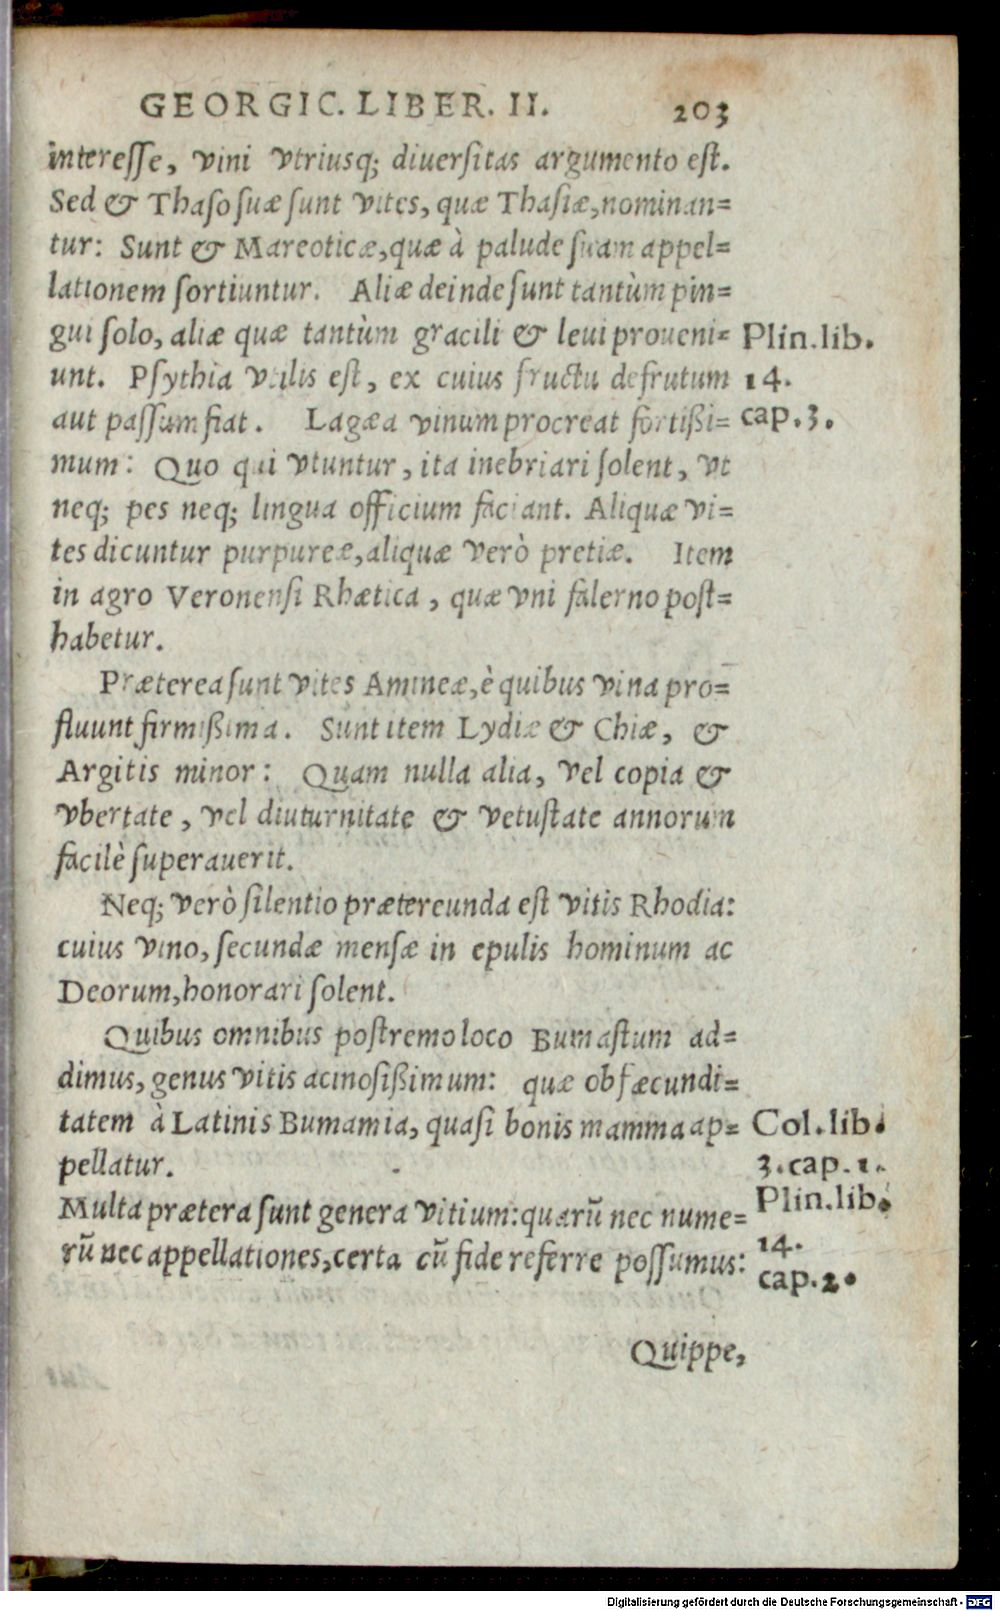 GEORGIC. LIBER. II. 203
interesse, vini vtriusq; diuersitas argumento est.
Sed & Thaso suæ sunt vites, quæ Thasiæ, nominan=
tur: Sunt & Mareoticæ, quæ à palude suam appel=
lationem sortiuntur. Aliæ deinde sunt tantùm pin=
gui solo, aliæ quæ tantùm gracili & leui proueni=
unt. Psythia vtilis est, ex cuius fructu defrutum
aut passum fiat. Lagæa vinum procreat fortißi=
mum: Quo qui vtuntur, ita inebriari solent, vt
neq; pes neq; lingua officium faciant. Aliquæ vi=
tes dicuntur purpureæ, aliquæ verò pretiæ. Item
in agro Veronensi Rhætica, quæ vni falerno post=
habetur.
Præterea sunt vites Amineæ, è quibus vina pro=
fluunt firmißima. Sunt item Lydiæ & Chiæ, &
Argitis minor: Quam nulla alia, vel copia &
vbertate, vel diuturnitate & vetustate annorum
facilè superauerit.
Neq; verò silentio prætereunda est vitis Rhodia:
cuius vino, secundæ mensæ in epulis hominum ac
Deorum, honorari solent.
Quibus omnibus postremo loco Bumastum ad=
dimus, genus vitis acinosißimum: quæ ob fæcundi=
tatem à Latinis Bumamia, quasi bonis mamma ap=
pellatur.
Multa prætera sunt genera vitium: quarũ nec nume=
rũ nec appellationes, certa cũ fide referre possumus:
Quippe,
Plin. lib.
14.
cap. 3.
Col. lib.
3. cap. 1.
Plin. lib.
14.
cap. 2.
Digitalisierung gefördert durch die Deutsche Forschungsgemeinschaft - DFG